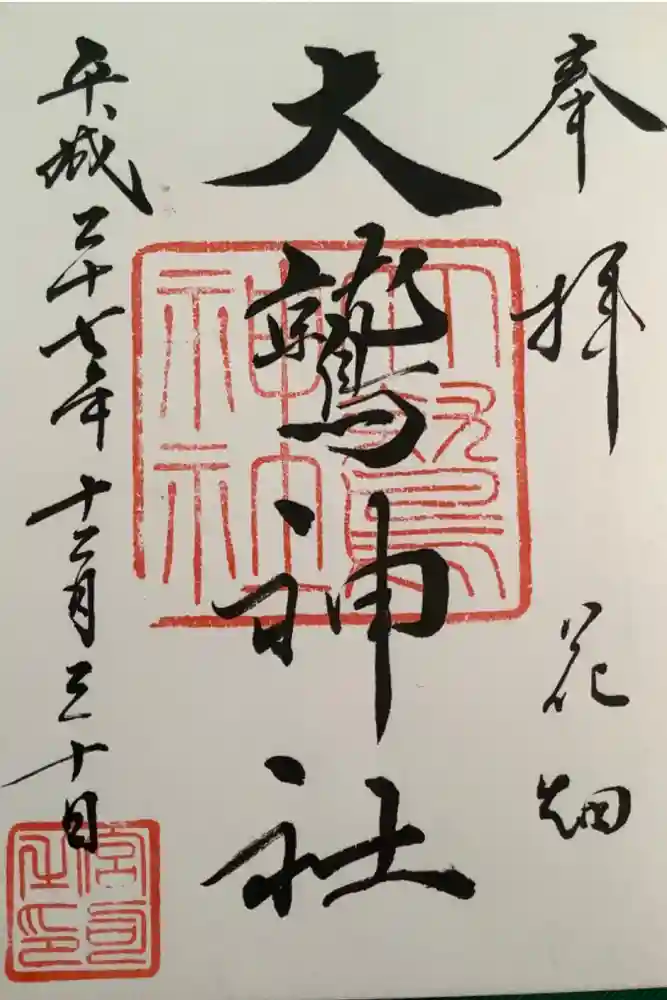 奉拝 花畑
大鷲神社
平成二十七年十二月三十日
大鷲神社
宮司之印